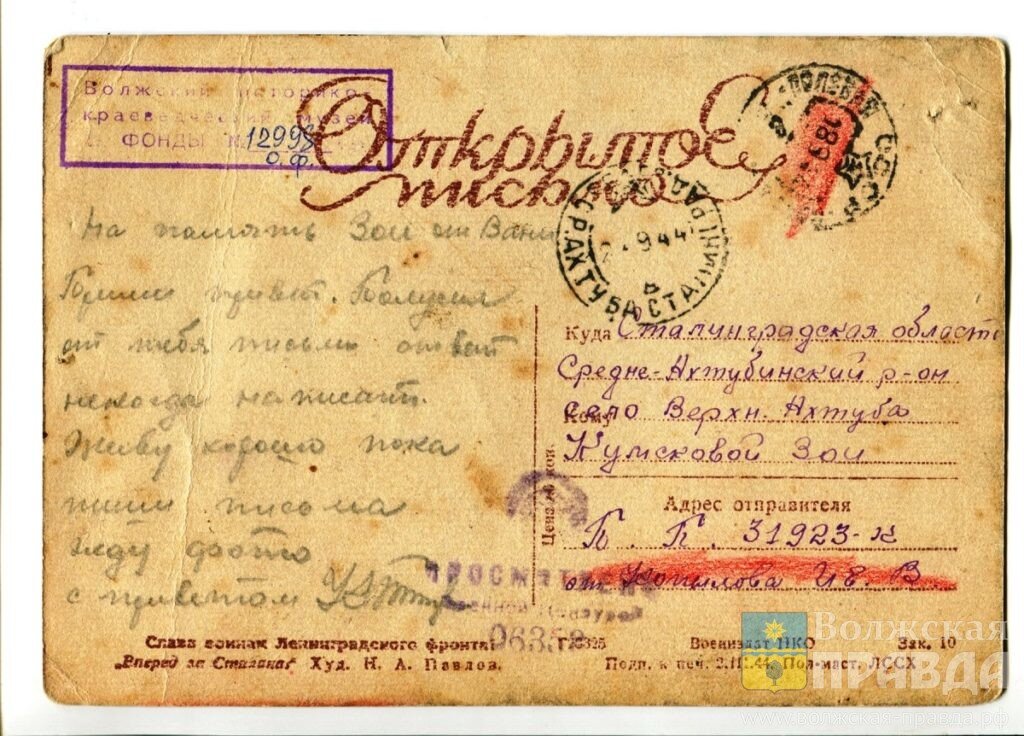 Волжский историко-
краеведческий музей
ФОНДЫ № 12998
о.ф.
Открытое
письмо
ПОЛЕВАЯ
СССР
СР.АХТУБА СТАЛИНГР
2.9 44
На память Зои от Вани
Прими привет. Получил
от тебя письмо ответ
некогда написать.
Живу хорошо пока
пиши письма
жду фото
с приветом
Куда Сталинградская область
Средне-Ахтубинский р-он
Кому село Верхн. Ахтуба
Кумсковой Зои
Адрес отправителя
П. П. 31923-к
от Копылова И.Е. В.
Цена коп.
ПРОСМОТРЕНО
Военной Цензурой
06358
Слава воинам Ленинградского фронта!
„Вперед за Сталина“ Худ. Н. А. Павлов.
Воениздат НКО Зак. 10
Подп. к печ. 2.II.44. Пол-маст. ЛССХ
Волжская
ПРАВДА
www.волжская-правда.рф